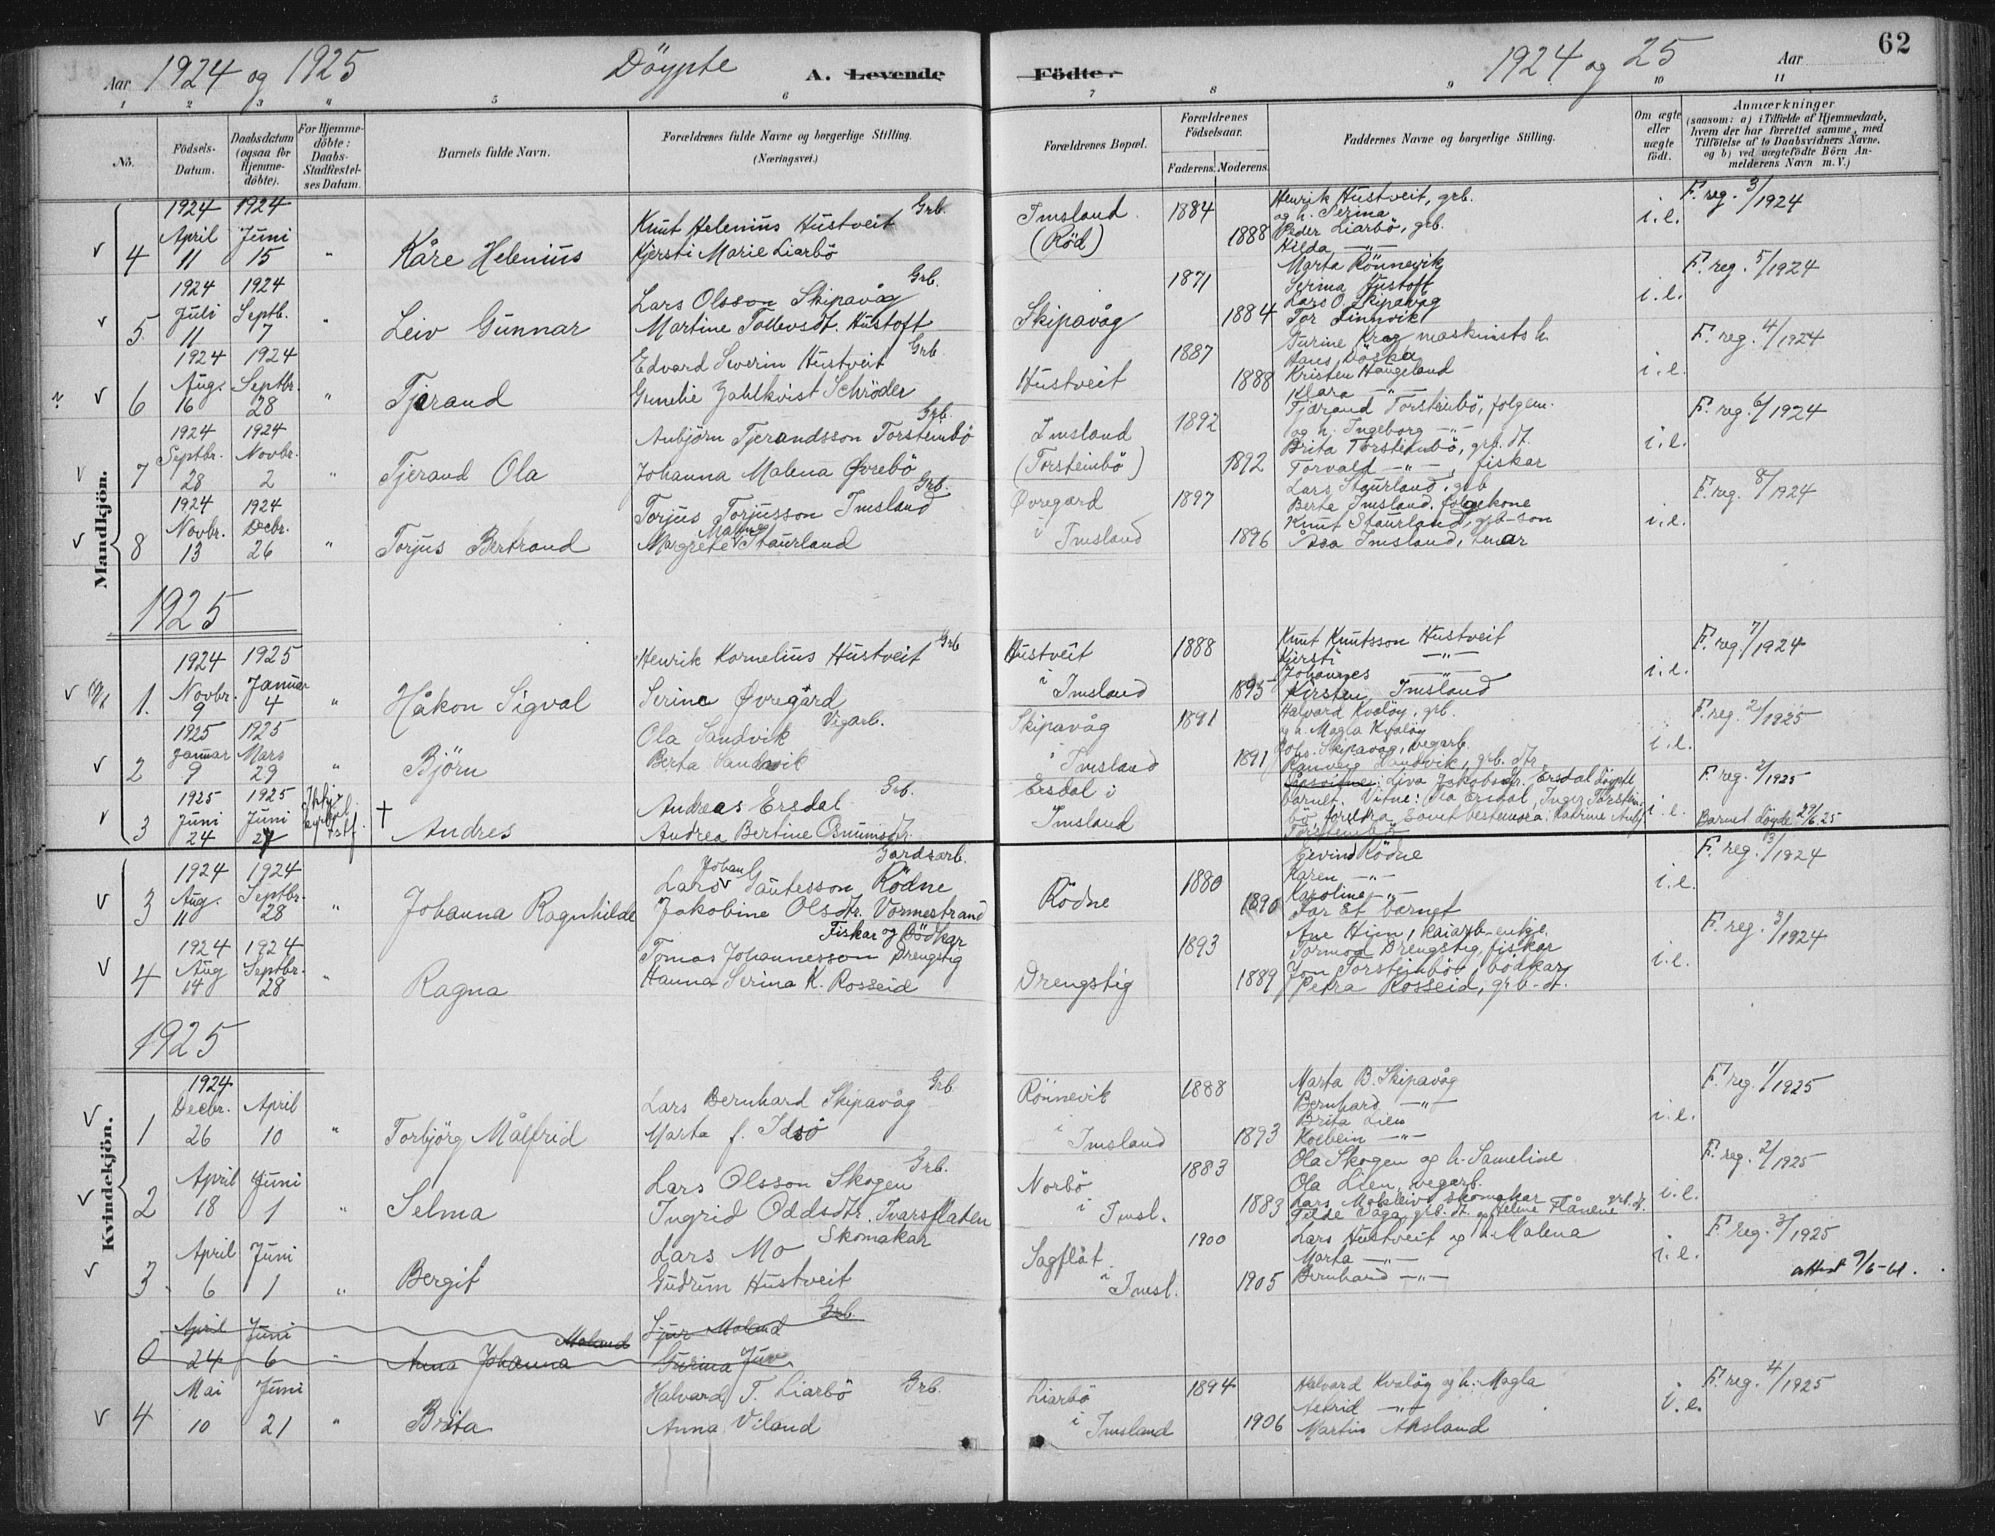 Aar 1924 og 1925 Döypte A. Levende Födte. 1924 og 25 Aar 62
1 2 3 4 5 6 7 8 9 10 11
No. Födsels-Datum. Daabsdatum (ogsaa for Hjemmedöbte). For Hjemmedöbte: Daabs-Stadfæstelses Datum. Barnets fulde Navn. Forældrenes fulde Navne og borgerlige Stilling. (Næringsvei.) Forældrenes Bopæl. Forældrenes Födselsaar. Faderens. Moderens. Faddernes Navne og borgerlige Stilling. Om ægte eller uægte födt. Anmærkninger (saasom: a) i Tilfælde af Hjemmedaab, hvem der har forrettet samme, med Tilföielse af to Daabsvidners Navne, og b) ved uægtefödte Börn Anmelderens Navn m. V.)
Mandkjön.
1924 1924 Knut Helenius Hustveit Grb. Imsland 1884 Henrik Hustveit, grb. i.e. F. reg. 3/1924
April Juni og h. Serina
4 11 15 " Kåre Helenius Kjersti Marie Liarbö (Röd) 1888 Peder Liarbö, grb.
Hilda -"-
1924 1924 Lars Olsson Skipavåg Grb. 1871 Marta Rönnevik F. reg. 5/1924
Juli Septb. Serina Hustoft
5 11 7 " Leiv Gunnar Martine Tollevsdt. Hustoft Skipavåg 1884 Lars O. Skipavåg i.e.
Tor Linnvik
1924 1924 Edvard Severin Hustveit Grb. 1887 Turine Krag maskinists h. F. reg. 4/1924
Aug. Septbr. Hans Döska
6 16 28 " Tjerand Gunelie Zahlkvist Schröder Hustveit 1888 Kristen Haugeland i.e.
Klara -"-
1924 1924 Anbjörn Tjerandsson Torsteinbö Grb. Imsland 1892 Tjærand Torsteinbö, folgem. F. reg. 6/1924
Septbr. Novbr. og h. Ingeborg -"-
7 28 2 " Tjerand Ola Johanna Malena Øvrebö (Torsteinbö) 1892 Brita Torsteinbö, grb. dt. i.e.
Torvald -"-, fiskar
1924 1924 Torjus Torjusson Imsland Grb. Øvregård 1897 Lars Staurland, grb F. reg. 8/1924
Novbr. Decbr. Malina Berte Imsland, folgekone
8 13 26 " Torjus Bertrand Margrete Staurland i Imsland 1896 Knut Staurland, grb-son i.e.
Åsa Imsland,
1925
1924 1925 Henrik Kornelius Hustveit Grb Hustveit 1888 Knut Knutsson Hustveit F. reg. 7/1924
Novbr. Januar Kjersti -"-
1. 9 4 " Håkon Sigval Serine Øvregård i Imsland 1895 Johannes -"- i.e.
Kirsten Imsland
1925 1925 Ola Sandvik Vegarb. Skipavåg 1891 Halvard Kvalöy, grb. F. reg. 2/1925
Januar Mars og h. Magla Kvalöy
2 9 29 " Björn Berta Sandvik i Imsland 1891 Johs. Skipavåg, vegarb. i.e.
Ranveig Sandvik, grb. dt.
1925 1925 Andreas Ersdal Grb. Ersdal i Liva Jakobsdr. Ersdal döypte F. reg. 2/1925
Juni Juni barnet. Vitne: Ersdal, Inger Torstein-
3 24 27 † Andres Andrea Bertine Osmundsdr. Imsland bö, foreldra i.e. Barnet döyde 29/6.25
Torsteinbö
Kvindekjön.
1924 1924 Johan Gardsarb. Eivind Rödne F. reg. 13/1924
Aug. Septbr. Lars Gautesson Rödne Rödne 1880 Karen -"- i.e.
3 11 28 " Johanna Ragnhilde Jakobine Olsdtr. Vormestrand 1890 Karoline -"-
Far åt barnet
1924 1924 Fiskar og Bödkar 1893 Ane Hien, kaiarb-enkje. F. reg. 3/1924
Aug Septbr. Tomas Johannesson Drengstig Tormod Drengstig, fiskar i.e.
4 14 28 " Ragna Hanna Serina K. Rosseid Drengstig 1889 Jon Torsteinbö, bödkar
Petra Rosseid, grb-dt.
1925
1924 Grb Rönnevik 1888 Marta B. Skipavåg F. reg. 1/1925
Decbr. April Lars Bernhard Skipavåg Bernhard -"-
1 26 10 " Torbjörg Målfrid Marta f. Idsö i Imsland 1893 Brita Lien i.e.
Kolbein -"-
April Juni Lars Olsson Skogen Grb. Norbö 1883 Ola Skogen og h. Sameline F. reg. 2/1925
Ola Lien, vegarb.
2 18 1 " Selma Ingrid Oddsdtr. Ivarsflaten i Imsl. 1883 Lars Mokleiv, skomakar i.e.
Tilde Våga, grb. dt. og Helene Flånene grb. dt.
April Juni Lars Mo Skomakar Sagflåt 1900 Lars Hustveit og h. Malena F. reg. 3/1925
Marta -"- i.e.
3 6 1 " Bergit Gudrun Hustveit i Imsl. 1905 Bernhard -"- attest 9/6-61.
April Juni Sjur Maland Grb.
0 24 6 " Anna Johanna Maland Gurina Juv
Mai Juni Halvard T. Liarbö Grb. Liarbö 1894 Halvard Kvalöy og h. Magla F. reg. 4/1925
Astrid -"- i.e.
4 10 21 " Brita Anna Viland i Imsland 1906 Martin Aksland